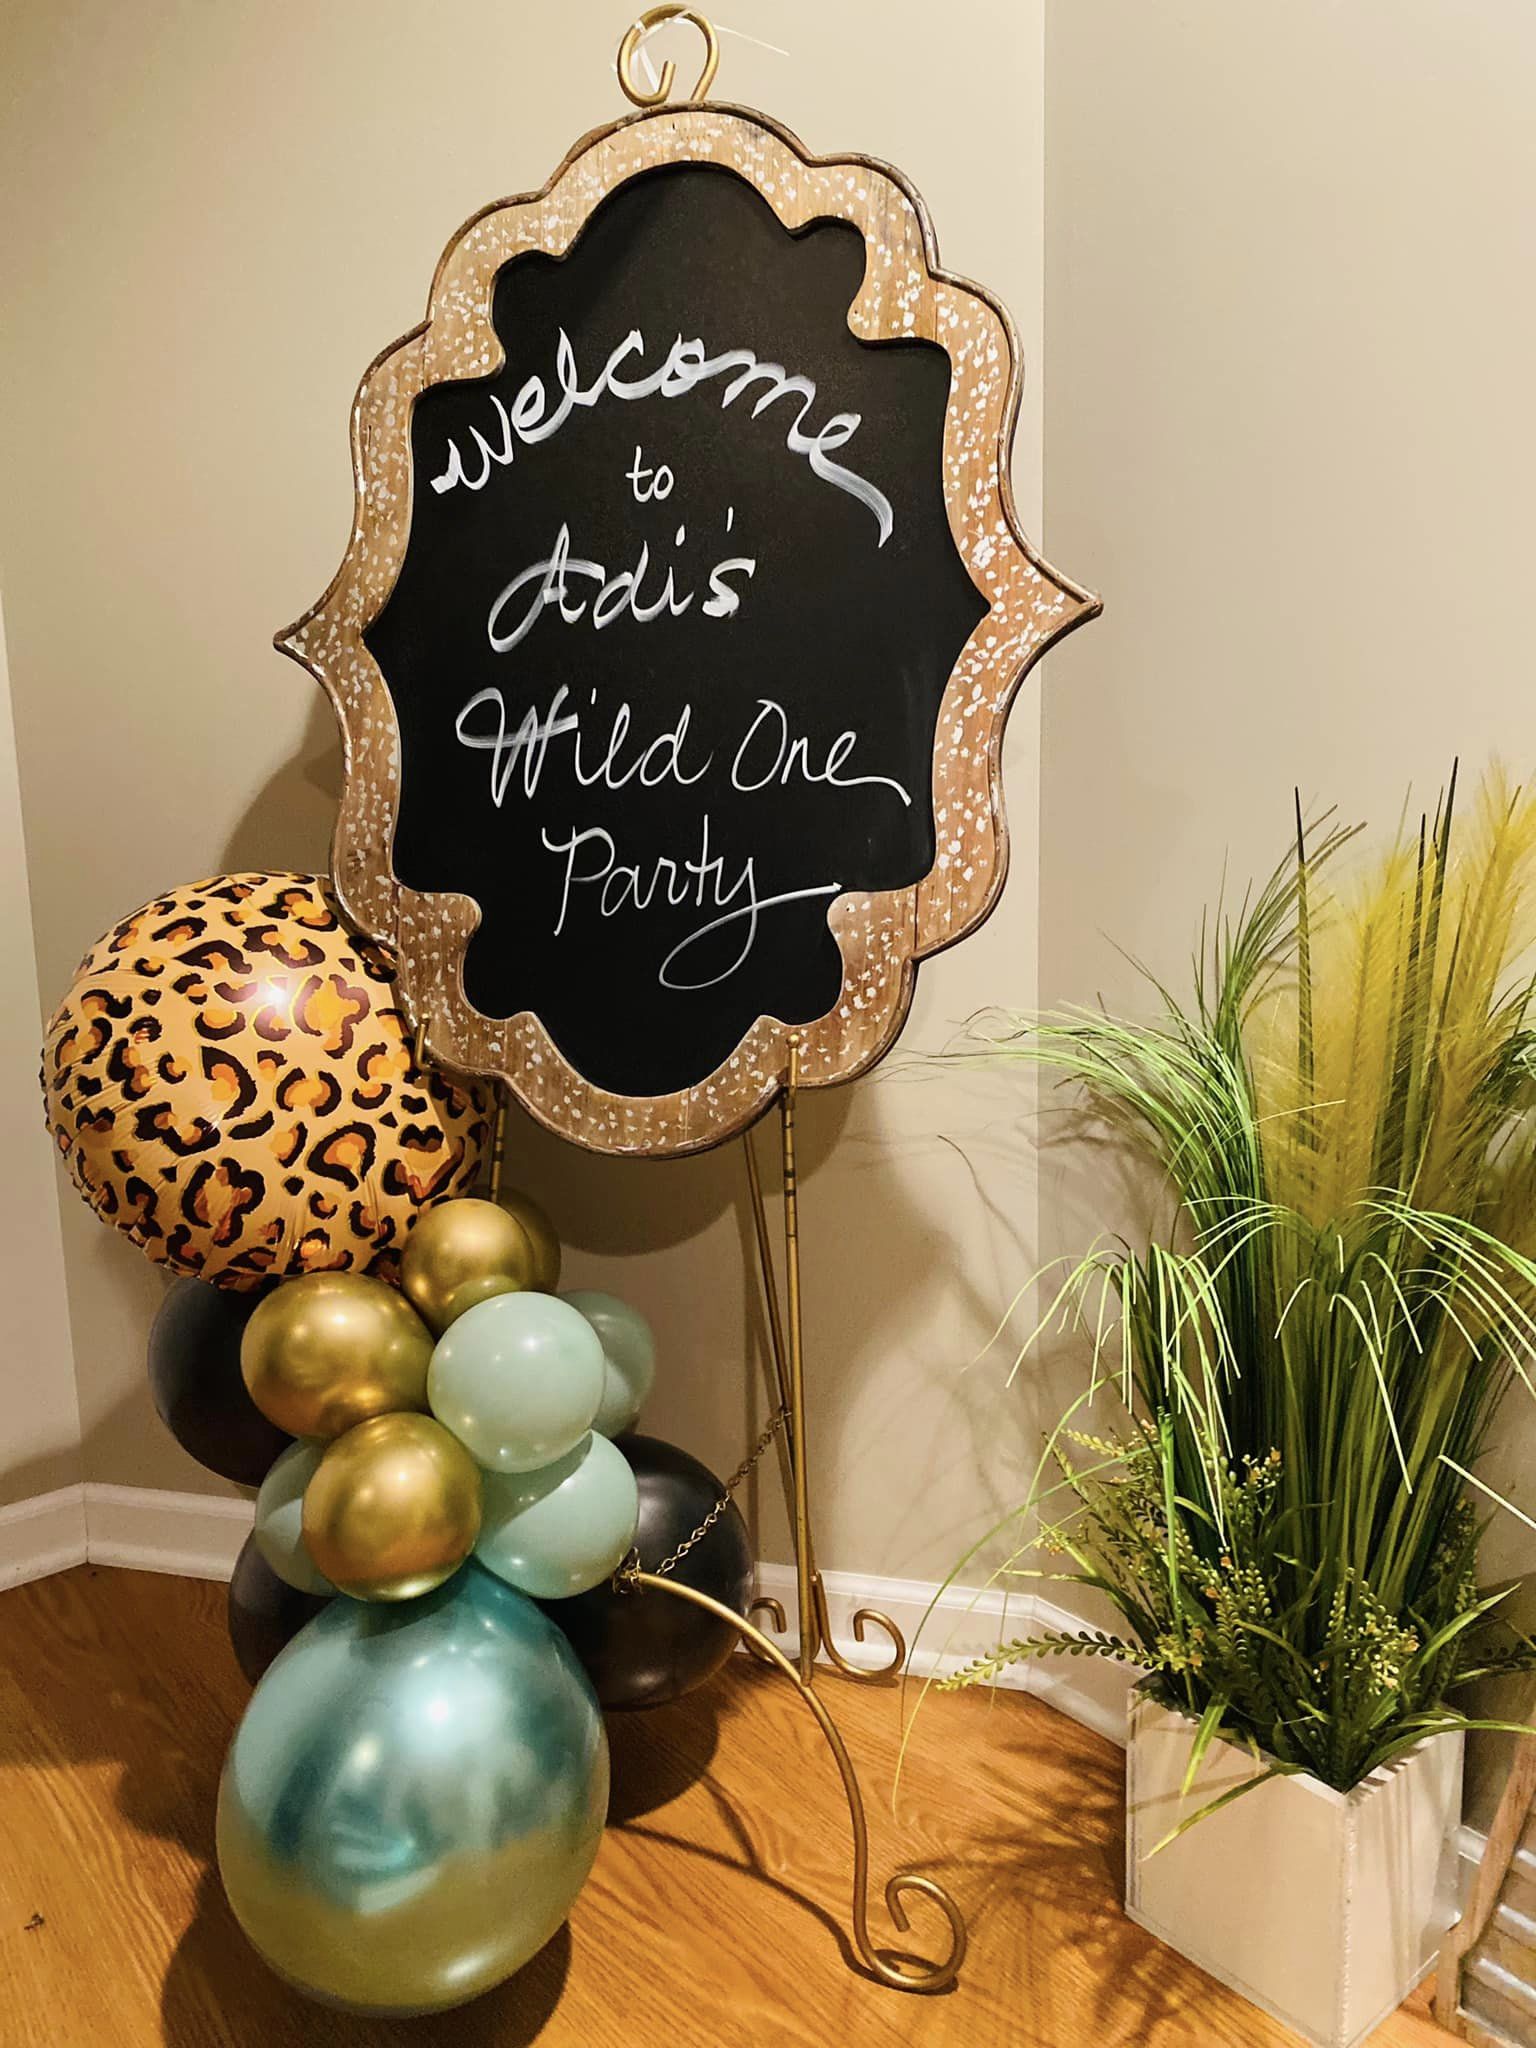 welcome
to
Adi's
Wild One
Party